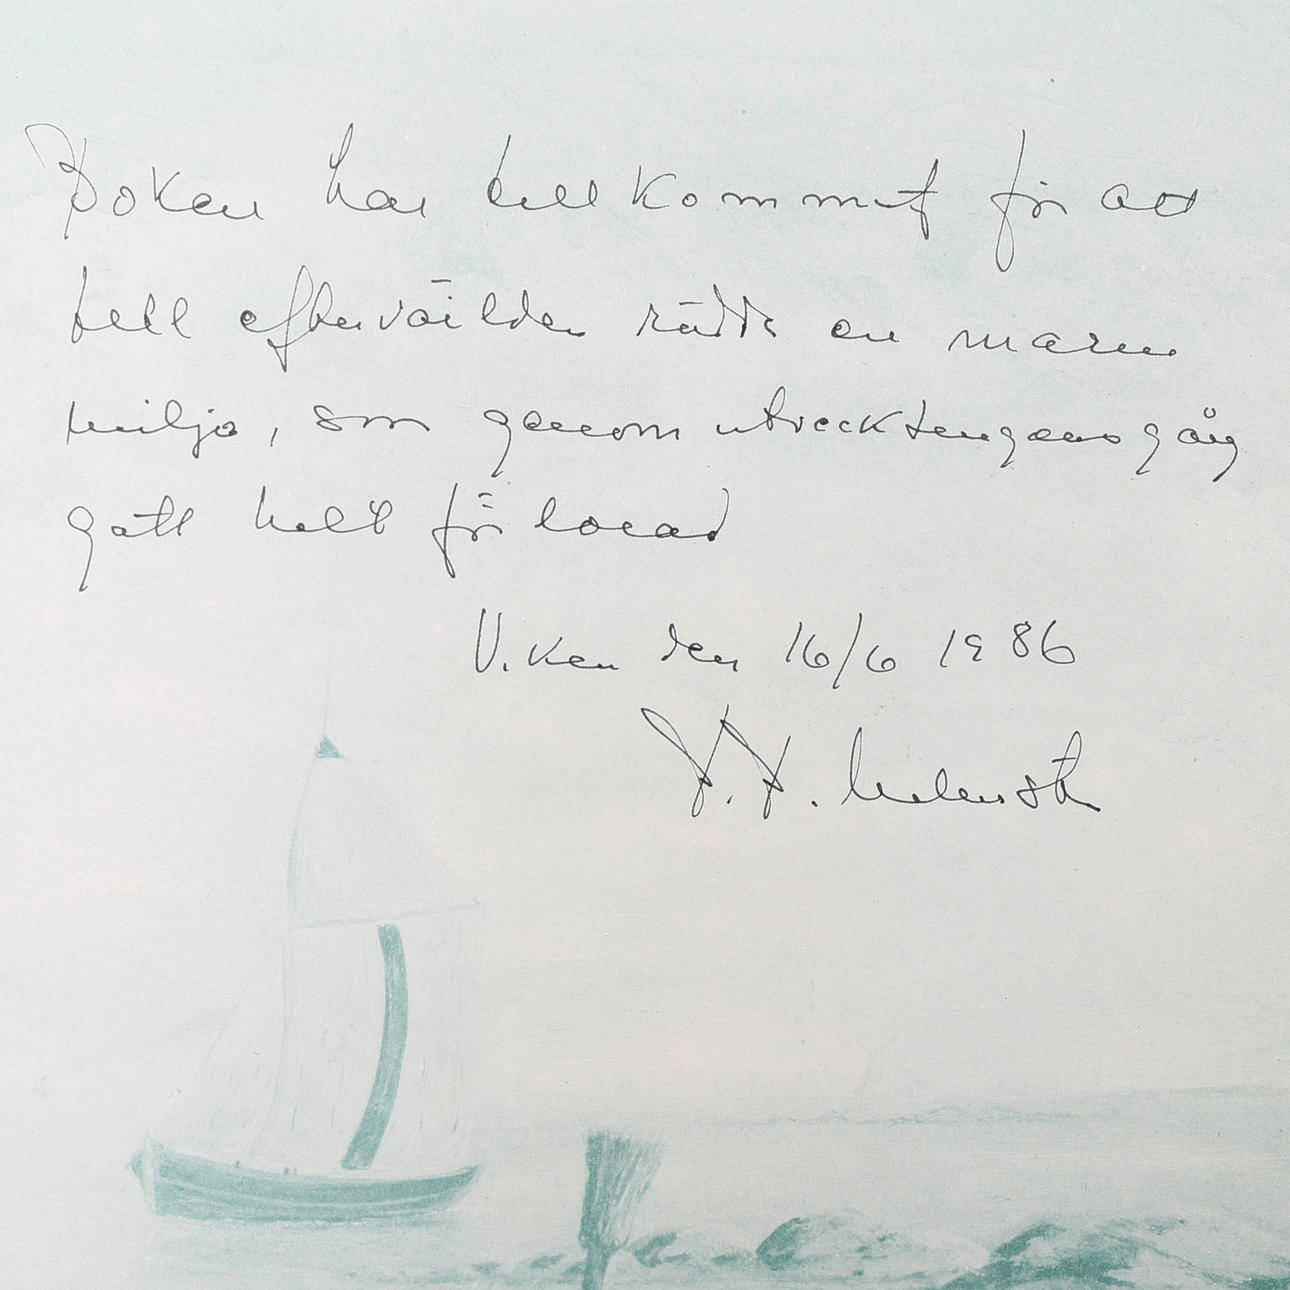 Boken har tillkommit för att
till eftervärlden rädda en marin
miljö, som genom utvecklingens gång
gått helt förlorad
Viken den 16/6 1986